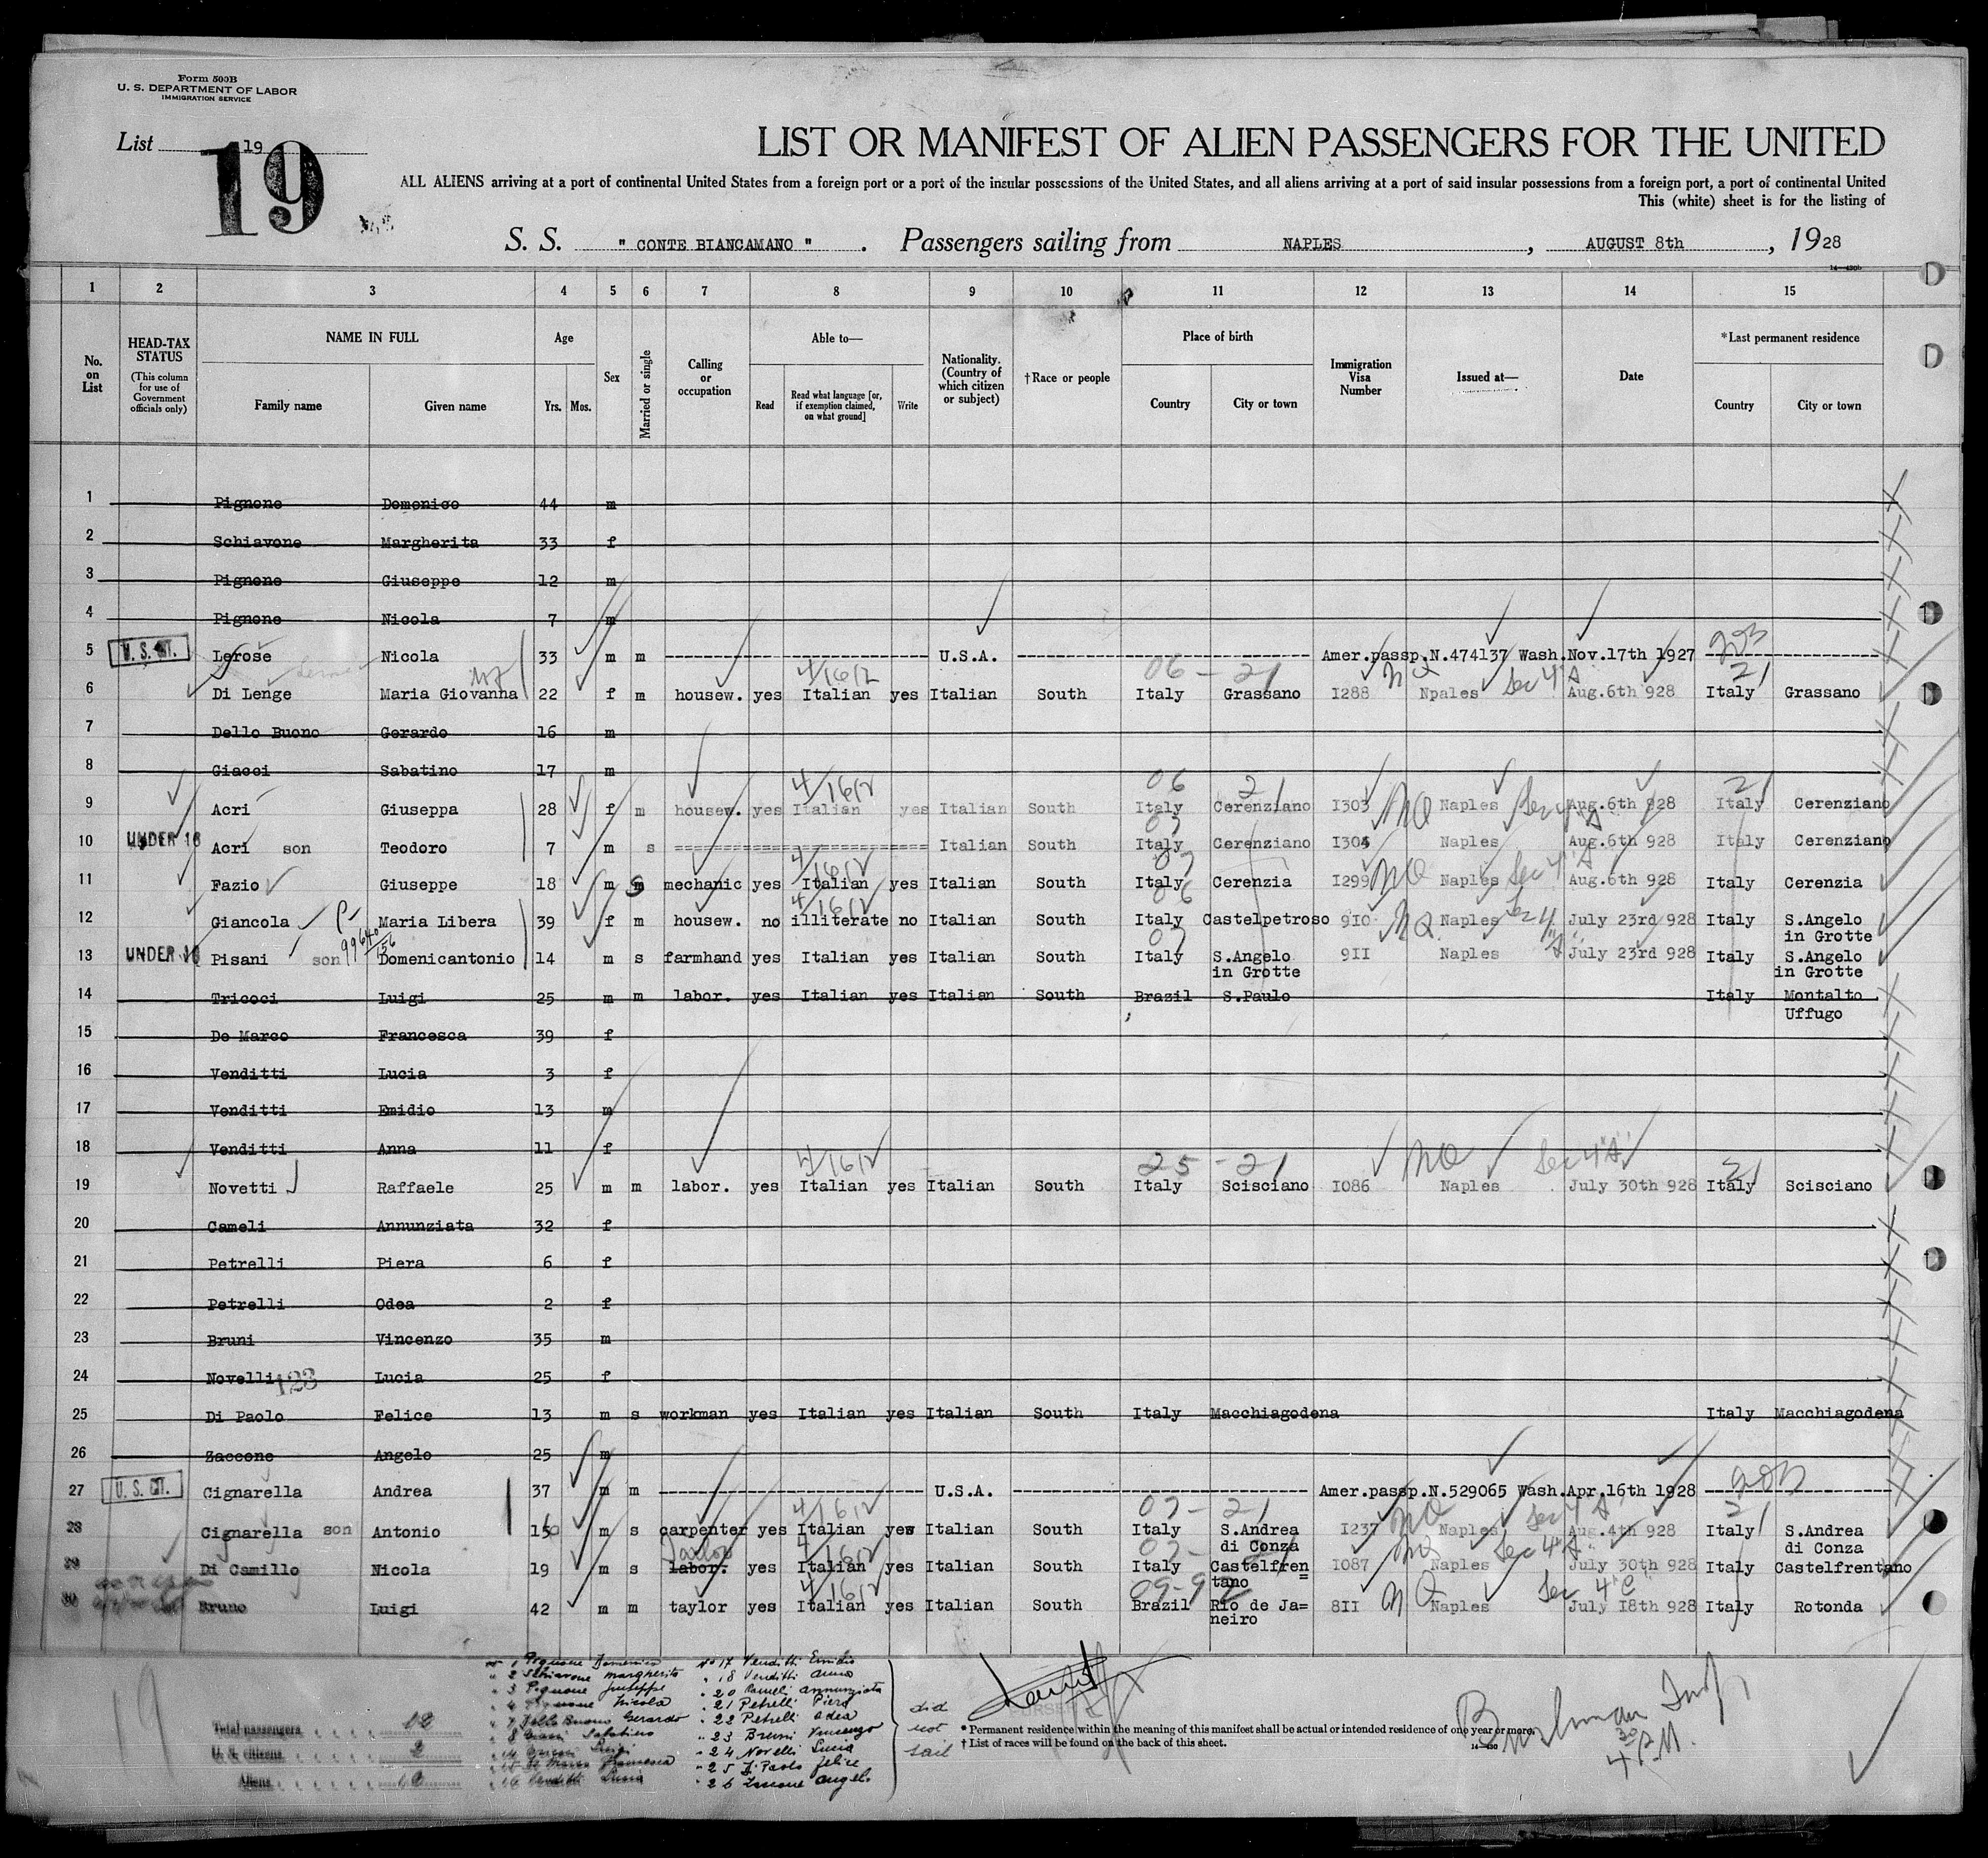 Form 500B
U. S. DEPARTMENT OF LABOR
IMMIGRATION SERVICE
List 19
19
LIST OR MANIFEST OF ALIEN PASSENGERS FOR THE UNITED
ALL ALIENS arriving at a port of continental United States from a foreign port or a port of the insular possessions of the United States, and all aliens arriving at a port of said insular possessions from a foreign port, a port of continental United
This (white) sheet is for the listing of
S. S. " CONTE BIANCAMANO " . Passengers sailing from NAPLES , AUGUST 8th , 1928
1 2 3 4 5 6 7 8 9 10 11 12 13 14 15
No. on List
HEAD-TAX STATUS
(This column for use of Government officials only)
NAME IN FULL
Family name Given name
Age
Yrs. Mos.
Sex
Married or single
Calling or occupation
Able to—
Read
Read what language [or, if exemption claimed, on what ground]
Write
Nationality. (Country of which citizen or subject)
†Race or people
Place of birth
Country City or town
Immigration Visa Number
Issued at—
Date
*Last permanent residence
Country City or town
1 Pignone Domenico 44 m
2 Schiavone Margherita 33 f
3 Pignone Giuseppe 12 m
4 Pignone Nicola 7 m
5 U. S. CIT. Lerose Nicola 33 m m U.S.A. Amer.passp.N.474137 Wash.Nov.17th 1927
4/16/2 06 - 21 NQ Sec 4"A 21
6 Di Lenge Maria Giovanna 22 f m housew. yes Italian yes Italian South Italy Grassano I288 Npales Aug.6th 928 Italy Grassano
7 Dello Buono Gerardo 16 m
8 Giacci Sabatino 17 m
4/16/2 06 21 21
9 Acri Giuseppa 28 f m housew. yes Italian yes Italian South Italy Cerenziano I303 NQ Naples Sec 4"A Aug.6th 928 Italy Cerenziano
10 UNDER 16 Acri son Teodoro 7 m s Italian South Italy Cerenziano I304 Naples Aug.6th 928 Italy Cerenziano
11 Fazio Giuseppe 18 m s mechanic yes Italian yes Italian South Italy Cerenzia I299 NQ Naples Sec 4"A Aug.6th 928 Italy Cerenzia
12 Giancola Maria Libera 39 f m housew. no illiterate no Italian South Italy Castelpetroso 9I0 NQ Naples Sec 4"A" July 23rd 928 Italy S.Angelo
in Grotte
13 UNDER 16 Pisani son Domenicantonio 14 m s farmhand yes Italian yes Italian South Italy S.Angelo 9II Naples July 23rd 928 Italy S.Angelo
in Grotte in Grotte
14 Tricoci Luigi 25 m m labor. yes Italian yes Italian South Brazil S.Paulo Italy Montalto
Uffugo
15 De Marco Francesca 39 f
16 Venditti Lucia 3 f
17 Venditti Emidio 13 m
18 Venditti Anna 11 f
4/16/2 25 - 21 NQ Sec 4"A" 21
19 Novetti Raffaele 25 m m labor. yes Italian yes Italian South Italy Scisciano I086 Naples July 30th 928 Italy Scisciano
20 Cameli Annunziata 32 f
21 Petrelli Piera 6 f
22 Petrelli Odea 2 f
23 Bruni Vincenzo 35 m
24 Novelli 123 Lucia 25 f
25 Di Paolo Felice 13 m s workman yes Italian yes Italian South Italy Macchiagodena Italy Macchiagodena
26 Zaccone Angelo 25 m
27 U. S. CIT. Cignarella Andrea 37 m m U.S.A. Amer.passp.N.529065 Wash.Apr.16th 1928
28 Cignarella son Antonio 15 m s carpenter yes Italian yes Italian South Italy S.Andrea I237 Naples Aug.4th 928 Italy S.Andrea
di Conza di Conza
29 Di Camillo Nicola 19 m s labor. yes Italian yes Italian South Italy Castelfren I087 Naples July 30th 928 Italy Castelfrentano
tano
30 Bruno Luigi 42 m m taylor yes Italian yes Italian South Brazil Rio de Ja= 8II NQ Naples Sec 4"C" July I8th 928 Italy Rotonda
neiro
1 Pignone Domenico No 17 Venditti Emidio
" 2 Schiavone Margherita " 18 Venditti Anna
" 3 Pignone Giuseppe " 20 Cameli Annunziata
" 4 Pignone Nicola " 21 Petrelli Piera
" 7 Dello Buono Gerardo " 22 Petrelli Odea
" 8 Giacci Sabatino " 23 Bruni Vincenzo
" 14 Tricoci Luigi " 24 Novelli Lucia
" 15 De Marco Francesca " 25 Di Paolo Felice
" 16 Venditti Lucia " 26 Zaccone Angelo
did
not
sail
19
Total passengers 12
U. S. citizens 2
Aliens 10
PURSER
* Permanent residence within the meaning of this manifest shall be actual or intended residence of one year or more.
† List of races will be found on the back of this sheet.
14—430
4 30 P.M.